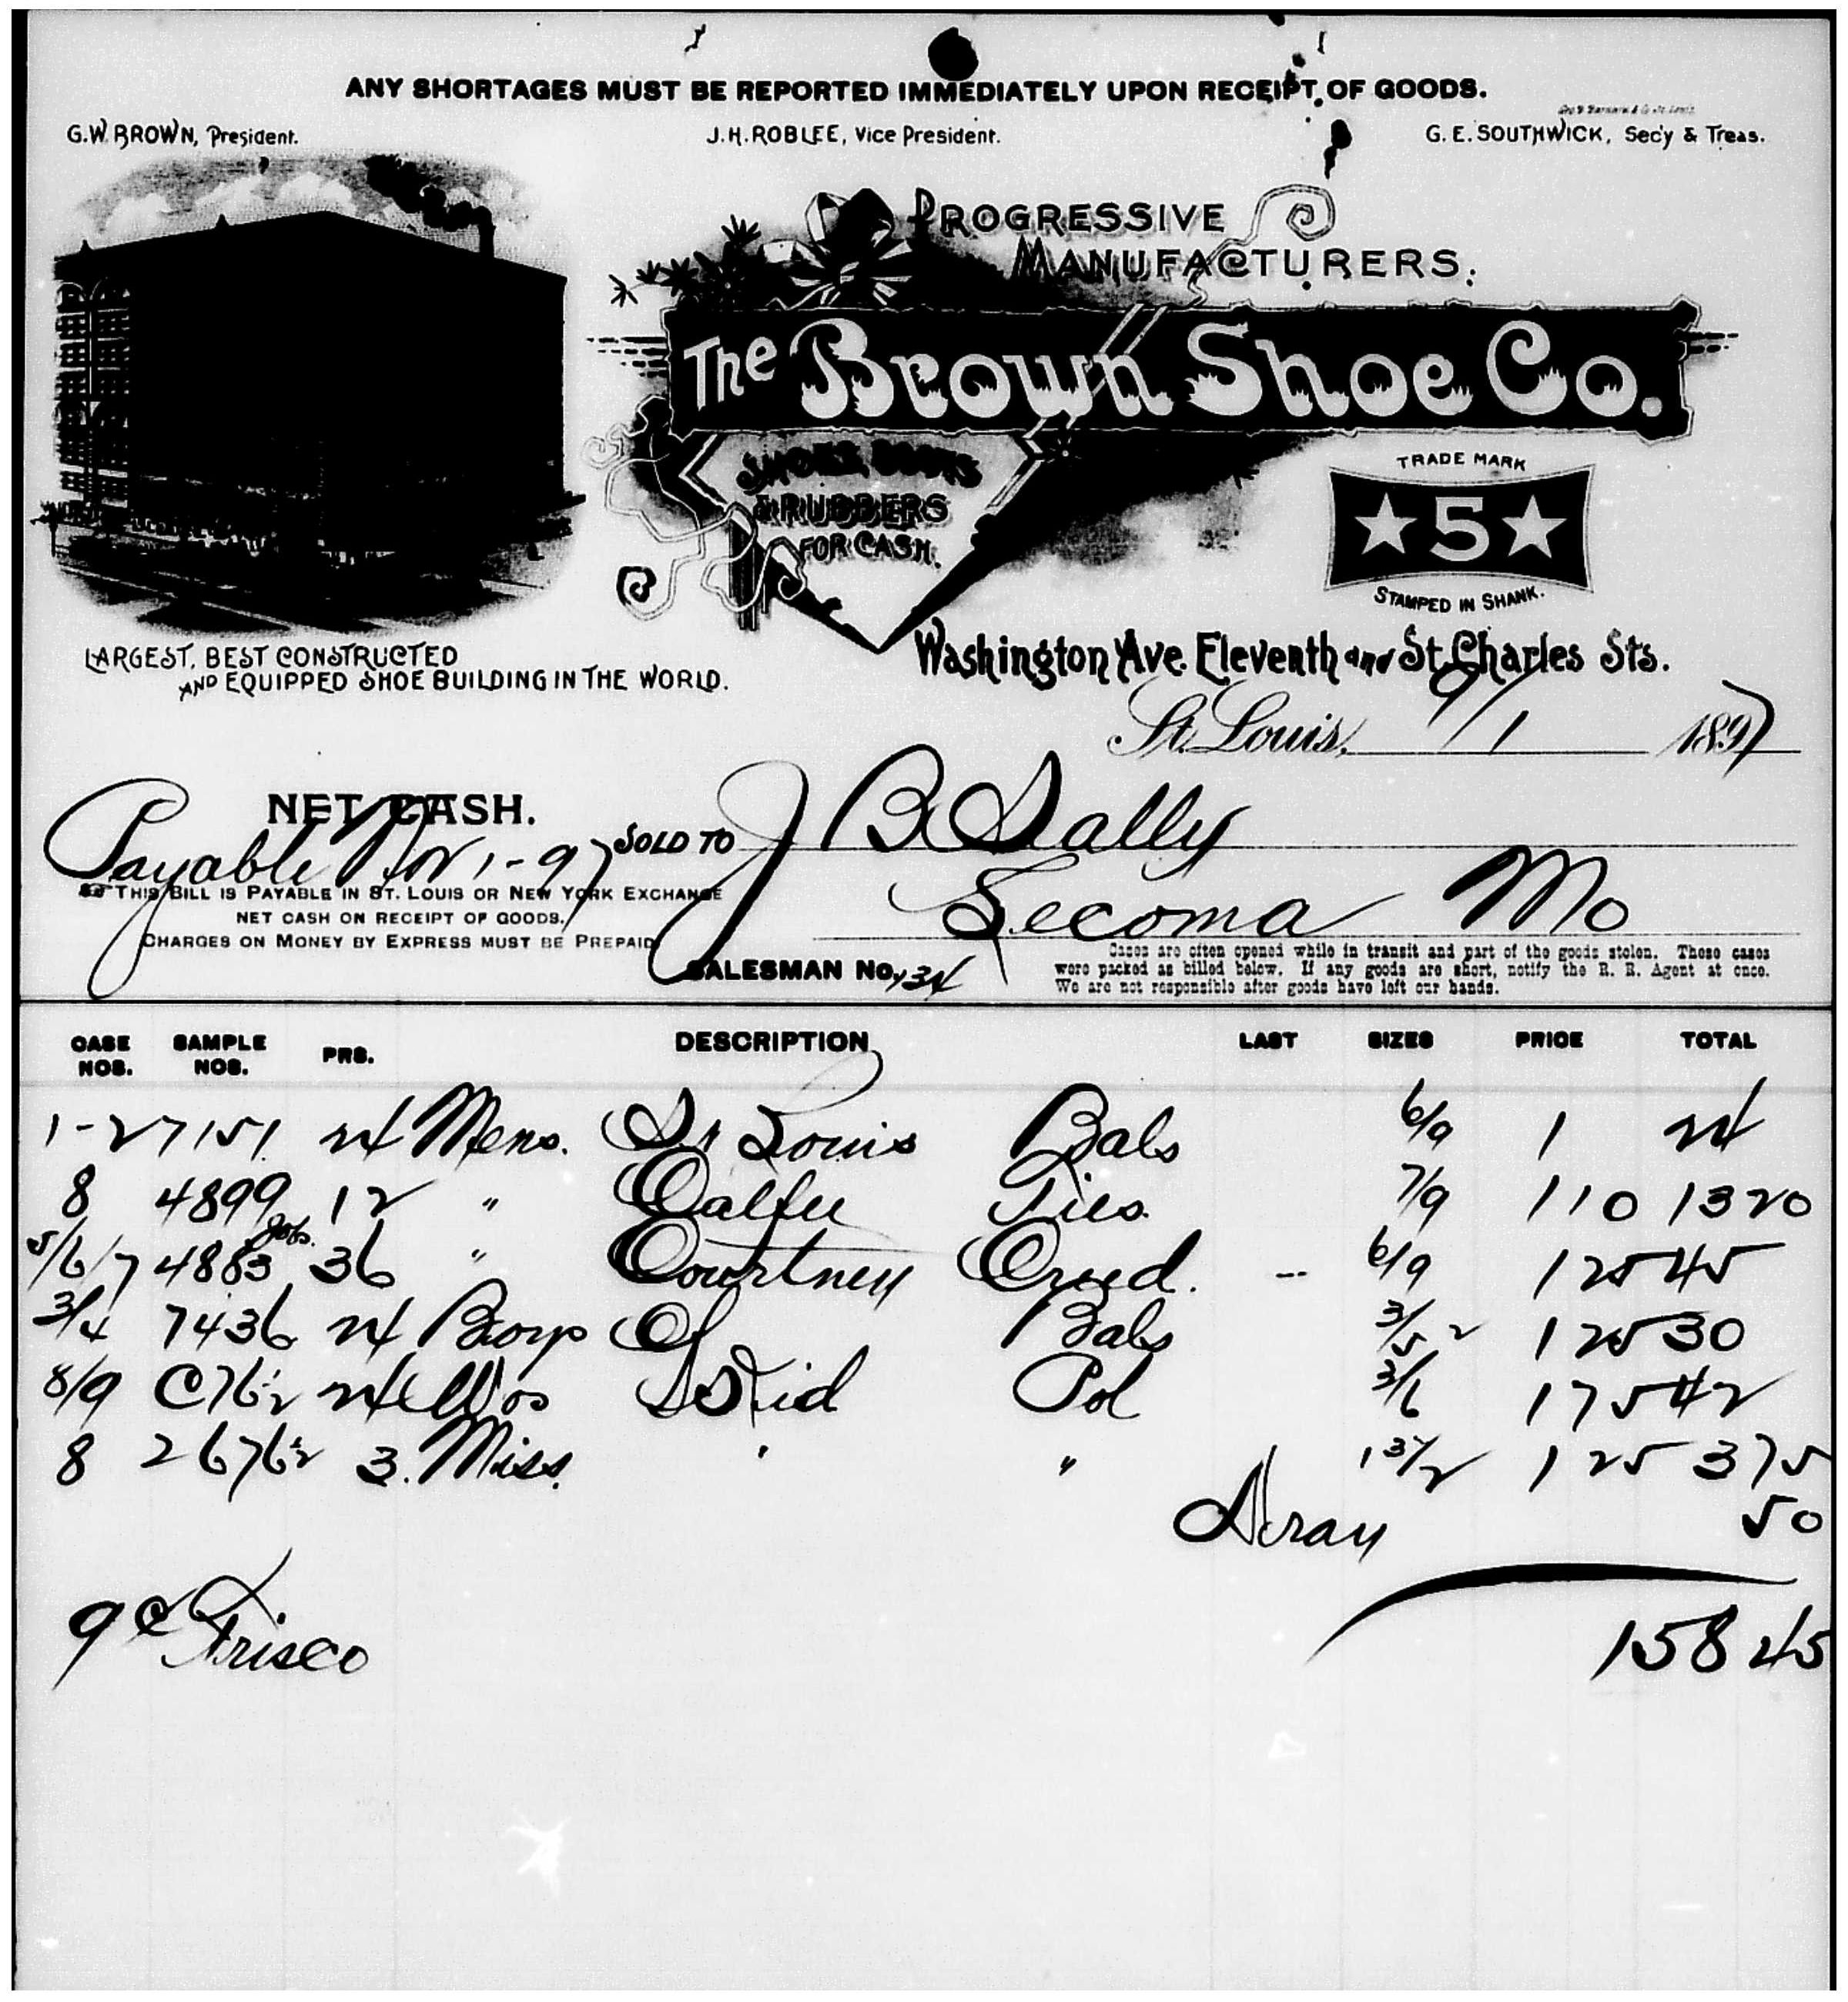 ANY SHORTAGES MUST BE REPORTED IMMEDIATELY UPON RECEIPT OF GOODS.
G.W. BROWN, President. J.H. ROBLEE, Vice President. G. E. SOUTHWICK, Sec'y & Treas.
PROGRESSIVE
MANUFACTURERS.
The Brown Shoe Co.
SHOES, BOOTS
& RUBBERS
FOR CASH.
TRADE MARK
5
STAMPED IN SHANK.
LARGEST, BEST CONSTRUCTED
AND EQUIPPED SHOE BUILDING IN THE WORLD.
Washington Ave. Eleventh and St. Charles Sts.
St. Louis, 9/1 1897
NET CASH.
Payable Nov 1-97
SOLD TO J B Sally
Secoma Mo
THIS BILL IS PAYABLE IN ST. LOUIS OR NEW YORK EXCHANGE
NET CASH ON RECEIPT OF GOODS.
CHARGES ON MONEY BY EXPRESS MUST BE PREPAID
SALESMAN No. 34
Cases are often opened while in transit and part of the goods stolen. These cases
were packed as billed below. If any goods are short, notify the R. R. Agent at once.
We are not responsible after goods have left our hands.
CASE NOS. SAMPLE NOS. PRS. DESCRIPTION LAST SIZES PRICE TOTAL
1-2 7151 24 Mens. St Louis Bals 6/9 1 24
8 4899 12 " Calfee Ties 7/9 110 1320
5/6/7 4883 36 " Courtney Creed. -- 6/9 125 45
3/4 7436 24 Boys Bals 3/5 2 125 30
8/9 C76½ 24 Wos D Kid Pol 3/6 175 42
8 2676½ 3. Miss. " " 13/2 125 375
Dray 50
9 c Frisco
158 45